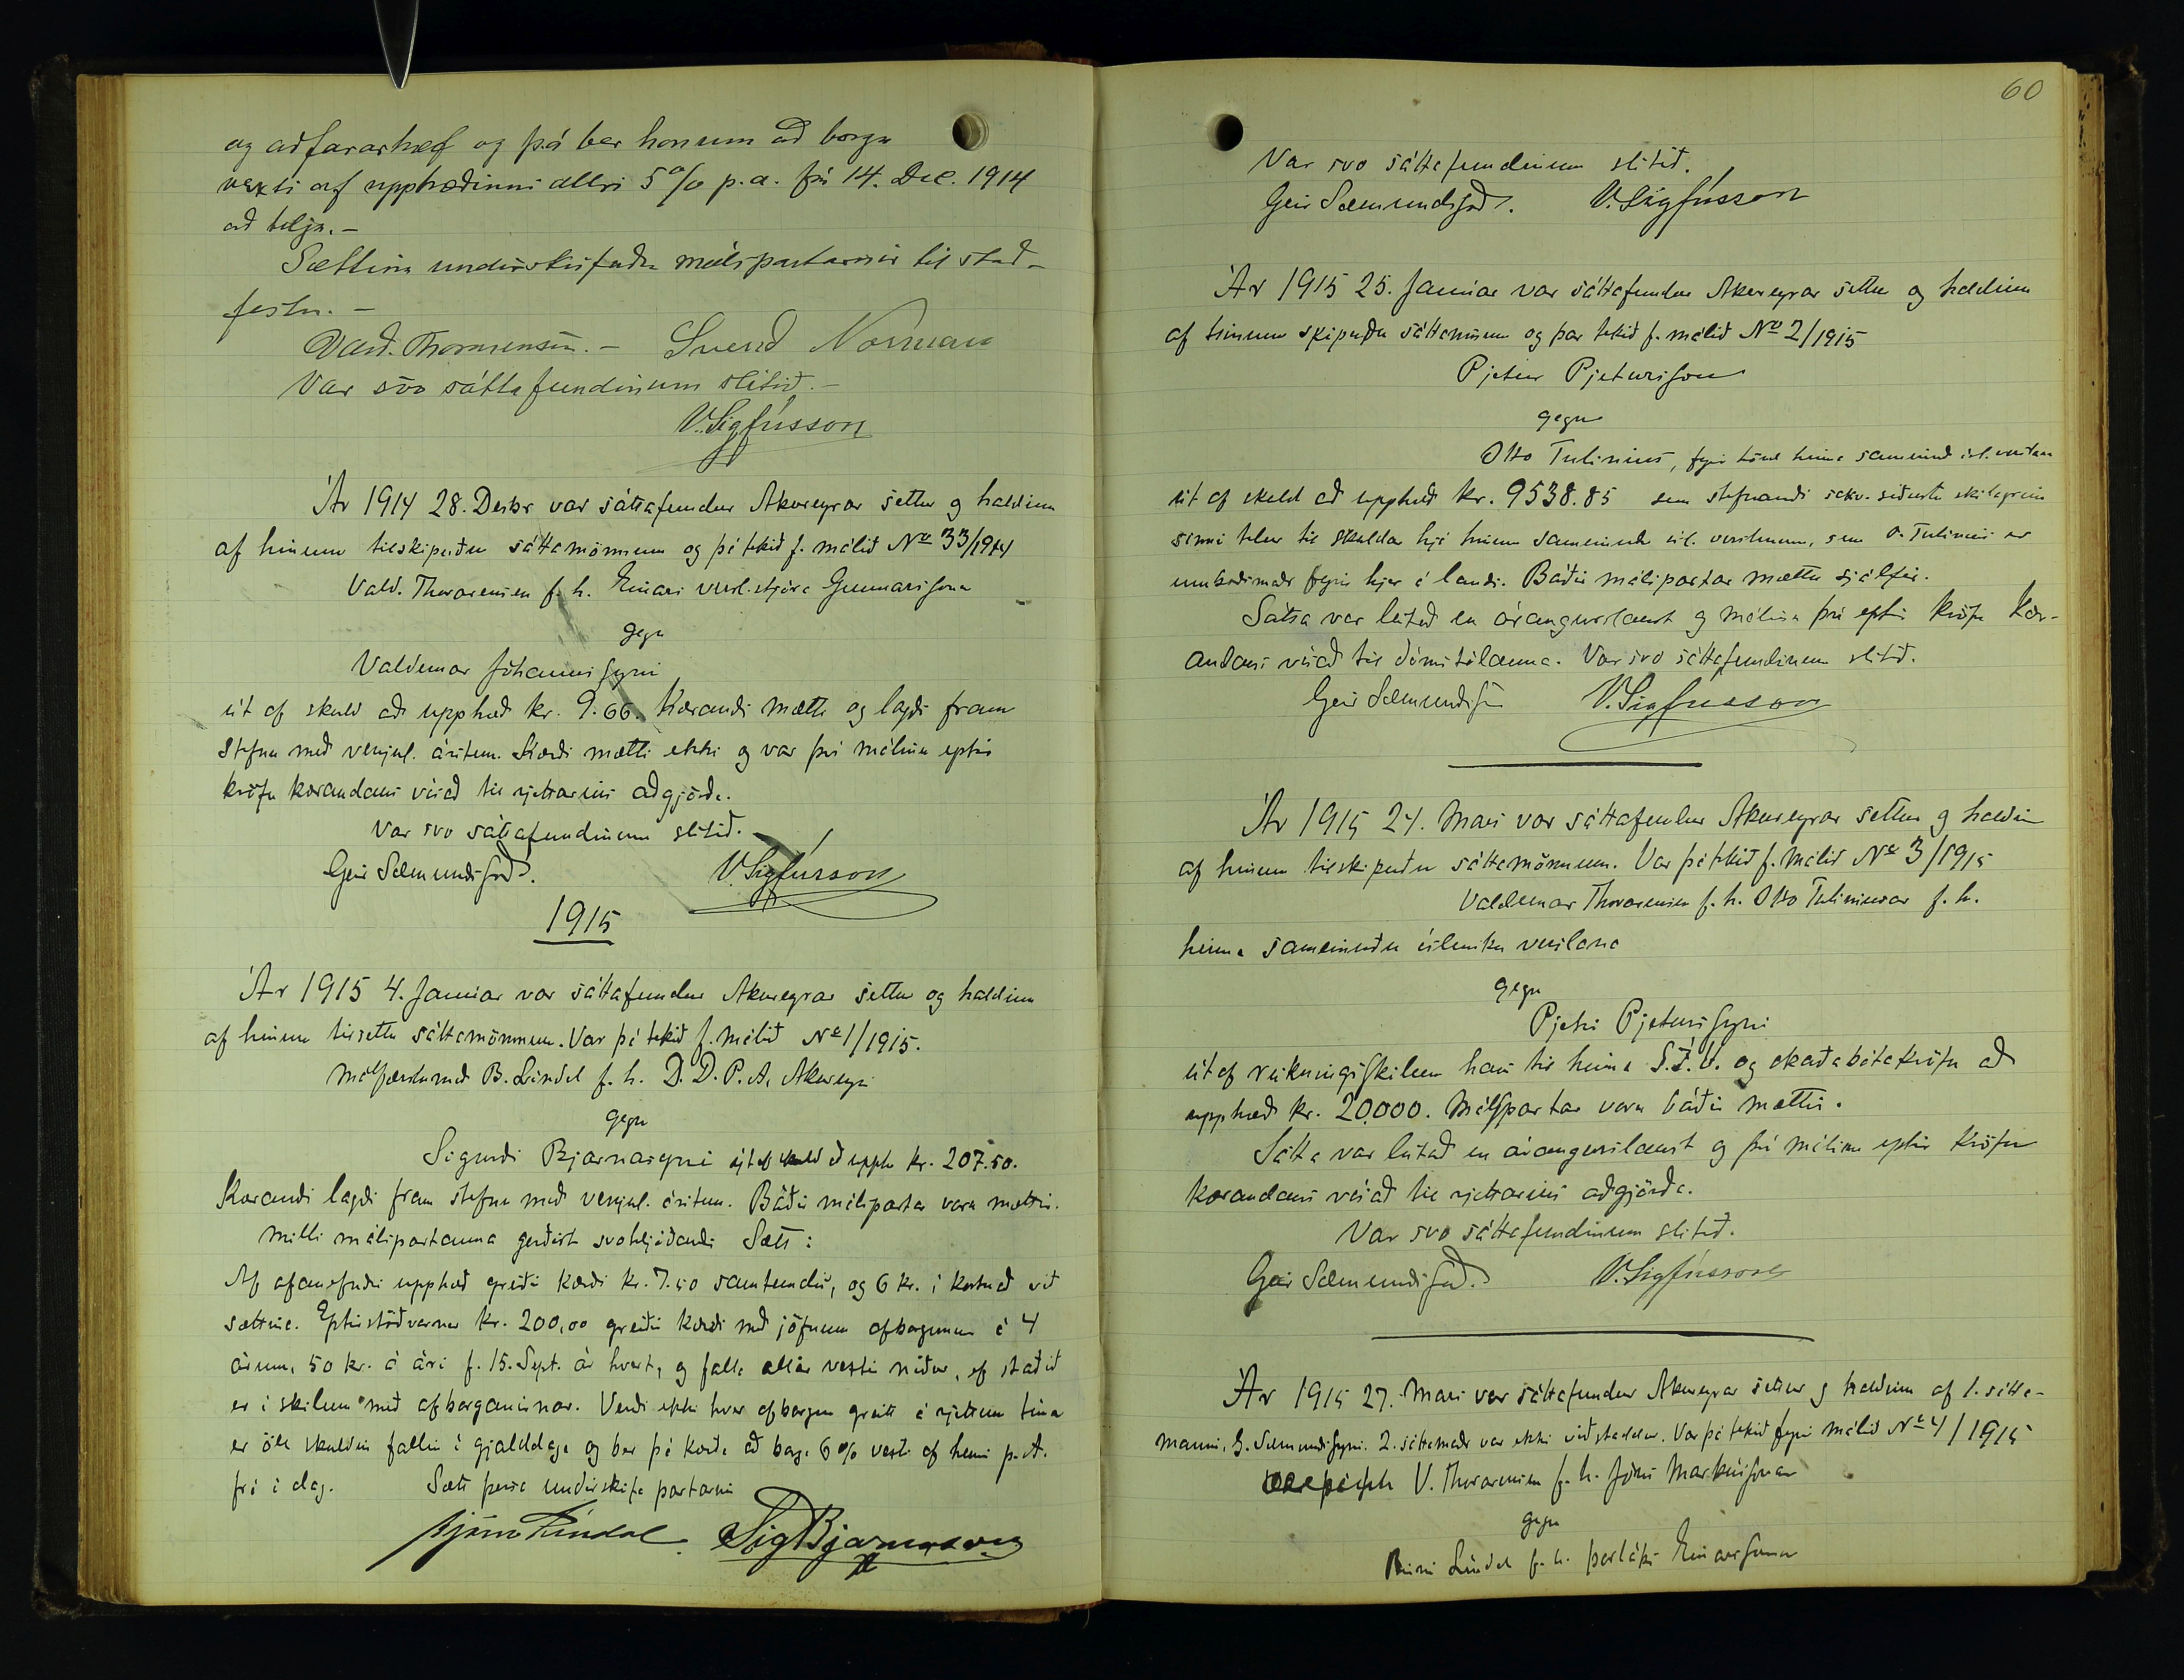 og aðfararhæf og þá ber honum að borga
vexti af upphæðinni allri 5% p.a. frá 14. Dec. 1914
að telja. –
Sættina undirskrifaðu málspartarnir til stað-
festu. –
Vald. Thorarensen. – Svend Norman
Var svo sáttafundinum slitið. –
V. Sigfússon
Ár 1914 28. Desbr var sáttafundur Akureyrar settur og haldinn
af hinum tilskipuðu sáttamönnum og þá tekið f. málið No 33/1914
Vald. Thorarensen f. h. Einars verksstjóra Gunnarssonar
gegn
Valdemar Jóhannssyni
út af skuld að upphæð kr. 9.66. Kærandi mætti og lagði fram
stefnu með venjul. áritun. Kærði mætti ekki og var því málinu eptir
kröfu kærandans vísað til rjettarins aðgjörða.
Var svo sáttafundinum slitið.
Geir Sæmundsson. V. Sigfússon
1915
Ár 1915 4. Janúar var sáttafundur Akureyrar settur og haldinn
af hinum tilsettu sáttamönnum. Var þá tekið f. málið No 1/1915.
Málfærslumað B. Líndal f. h. D. D. P. A. Akureyri
gegn
Sigurði Bjarnasyni út af skuld að upph kr. 207.50.
Kærandi lagði fram stefnu með venjul. áritun. Báðir málspartar voru mættir.
Milli málspartanna gerðist svohljóðandi Sætt:
Af ofannefndri upphæð greiði kærði kr. 7.50 samstundis, og 6 kr. í kostnað við
sættina. Eptirstöðvarnar kr. 200,00 greiði kærði með jöfnum afborgunum á 4
árum, 50 kr. á ári f. 15. Sept. ár hvert, og falla allir vextir niður, ef staðið
er í skilum með afborganirnar. Verði ekki hver afborgun greitt á rjettum tíma
er öll skuldin fallin í gjalddaga og ber þá kærða að borga 6% vexti af henni p.a.
frá í dag. Sætt þessa undirskrifa partarnir
Björn Líndal. Sig Bjarnason
60
Var svo sáttafundinum slitið.
Geir Sæmundsson. V. Sigfússon
Ár 1915 25. Janúar var sáttafundur Akureyrar settur og haldinn
af hinum skipuðu sáttamönnum og þar tekið f. málið No 2/1915
Pjetur Pjetursson
gegn
Otto Tulinius, fyrir hönd hinna sameinuð ísl. verslana
út af skuld að upphæð kr. 9538.85 sem stefnandi sakv. síðustu skilagrein
sinni telur til skuldar hjá hinum sameinuðu ísl. verslunum, sem O. Tulinius er
umboðsmaðr fyrir hjer á landi. Báðir málspartar mættu sjálfir.
Sátta var leitað en árangurslaust og málinu því eptir kröfu kær-
andans vísað til dómstólanna. Var svo sáttafundinum slitið.
Geir Sæmundsson V. Sigfússon
Ár 1915 24. Mars var sáttafundur Akureyrar settur og haldinn
af hinum tilskipuðu sáttamönnum. Var þá tekið f. málið No 3/1915
Valdemar Thorarensen f. h. Otto Tuliniusar f. h.
hinna sameinuðu íslensku verslana
gegn
Pjetri Pjeturssyni
út af reikningsskilum hans til hinna S.Í.V. og skaðabótakröfu að
upphæð kr. 20.000. Málspartar voru báðir mættir.
Sátta var leitað en árangurslaust og því málinu eptir kröfu
kærandans vísað til rjettarins aðgjörða.
Var svo sáttafundinum slitið.
Geir Sæmundsson. V. Sigfússon
Ár 1915 27. Mars var sáttafundur Akureyrar settur og haldinn af 1. sátta-
manni, G. Sæmundssyni. 2. sáttamaðr var ekki viðstaddur. Var þá tekið fyrir málið No 4/1915
V. Thorarensen f. h. Jóns Markússonar
gegn
Birni Líndal f. h. Þorláks Einarssonar